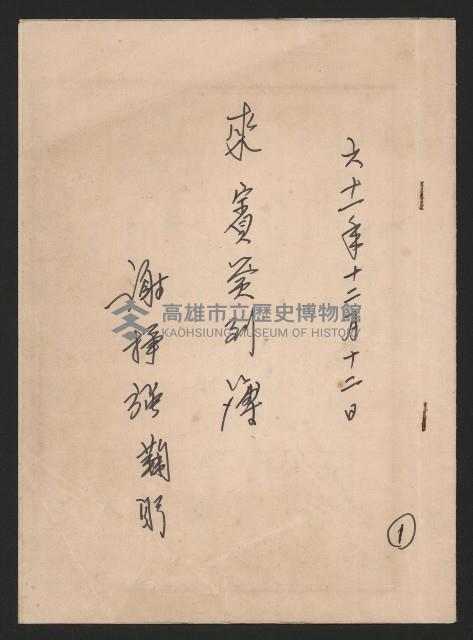 六十一年十二月十二日
來賓簽到簿
謝掙強
①
高雄市立歷史博物館
KAOHSIUNG MUSEUM OF HISTORY